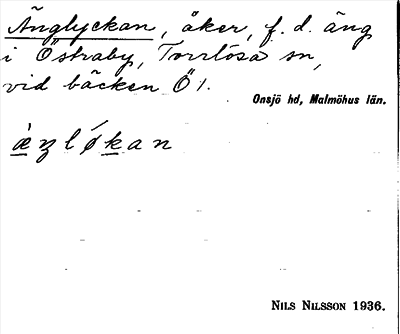 Änglyckan, åker, f. d. äng
i Östraby, Torrlösa sn,
vid bäcken Ö 1.
Onsjö hd, Malmöhus län.
æ̀ŋlǿkan
NILS NILSSON 1936.